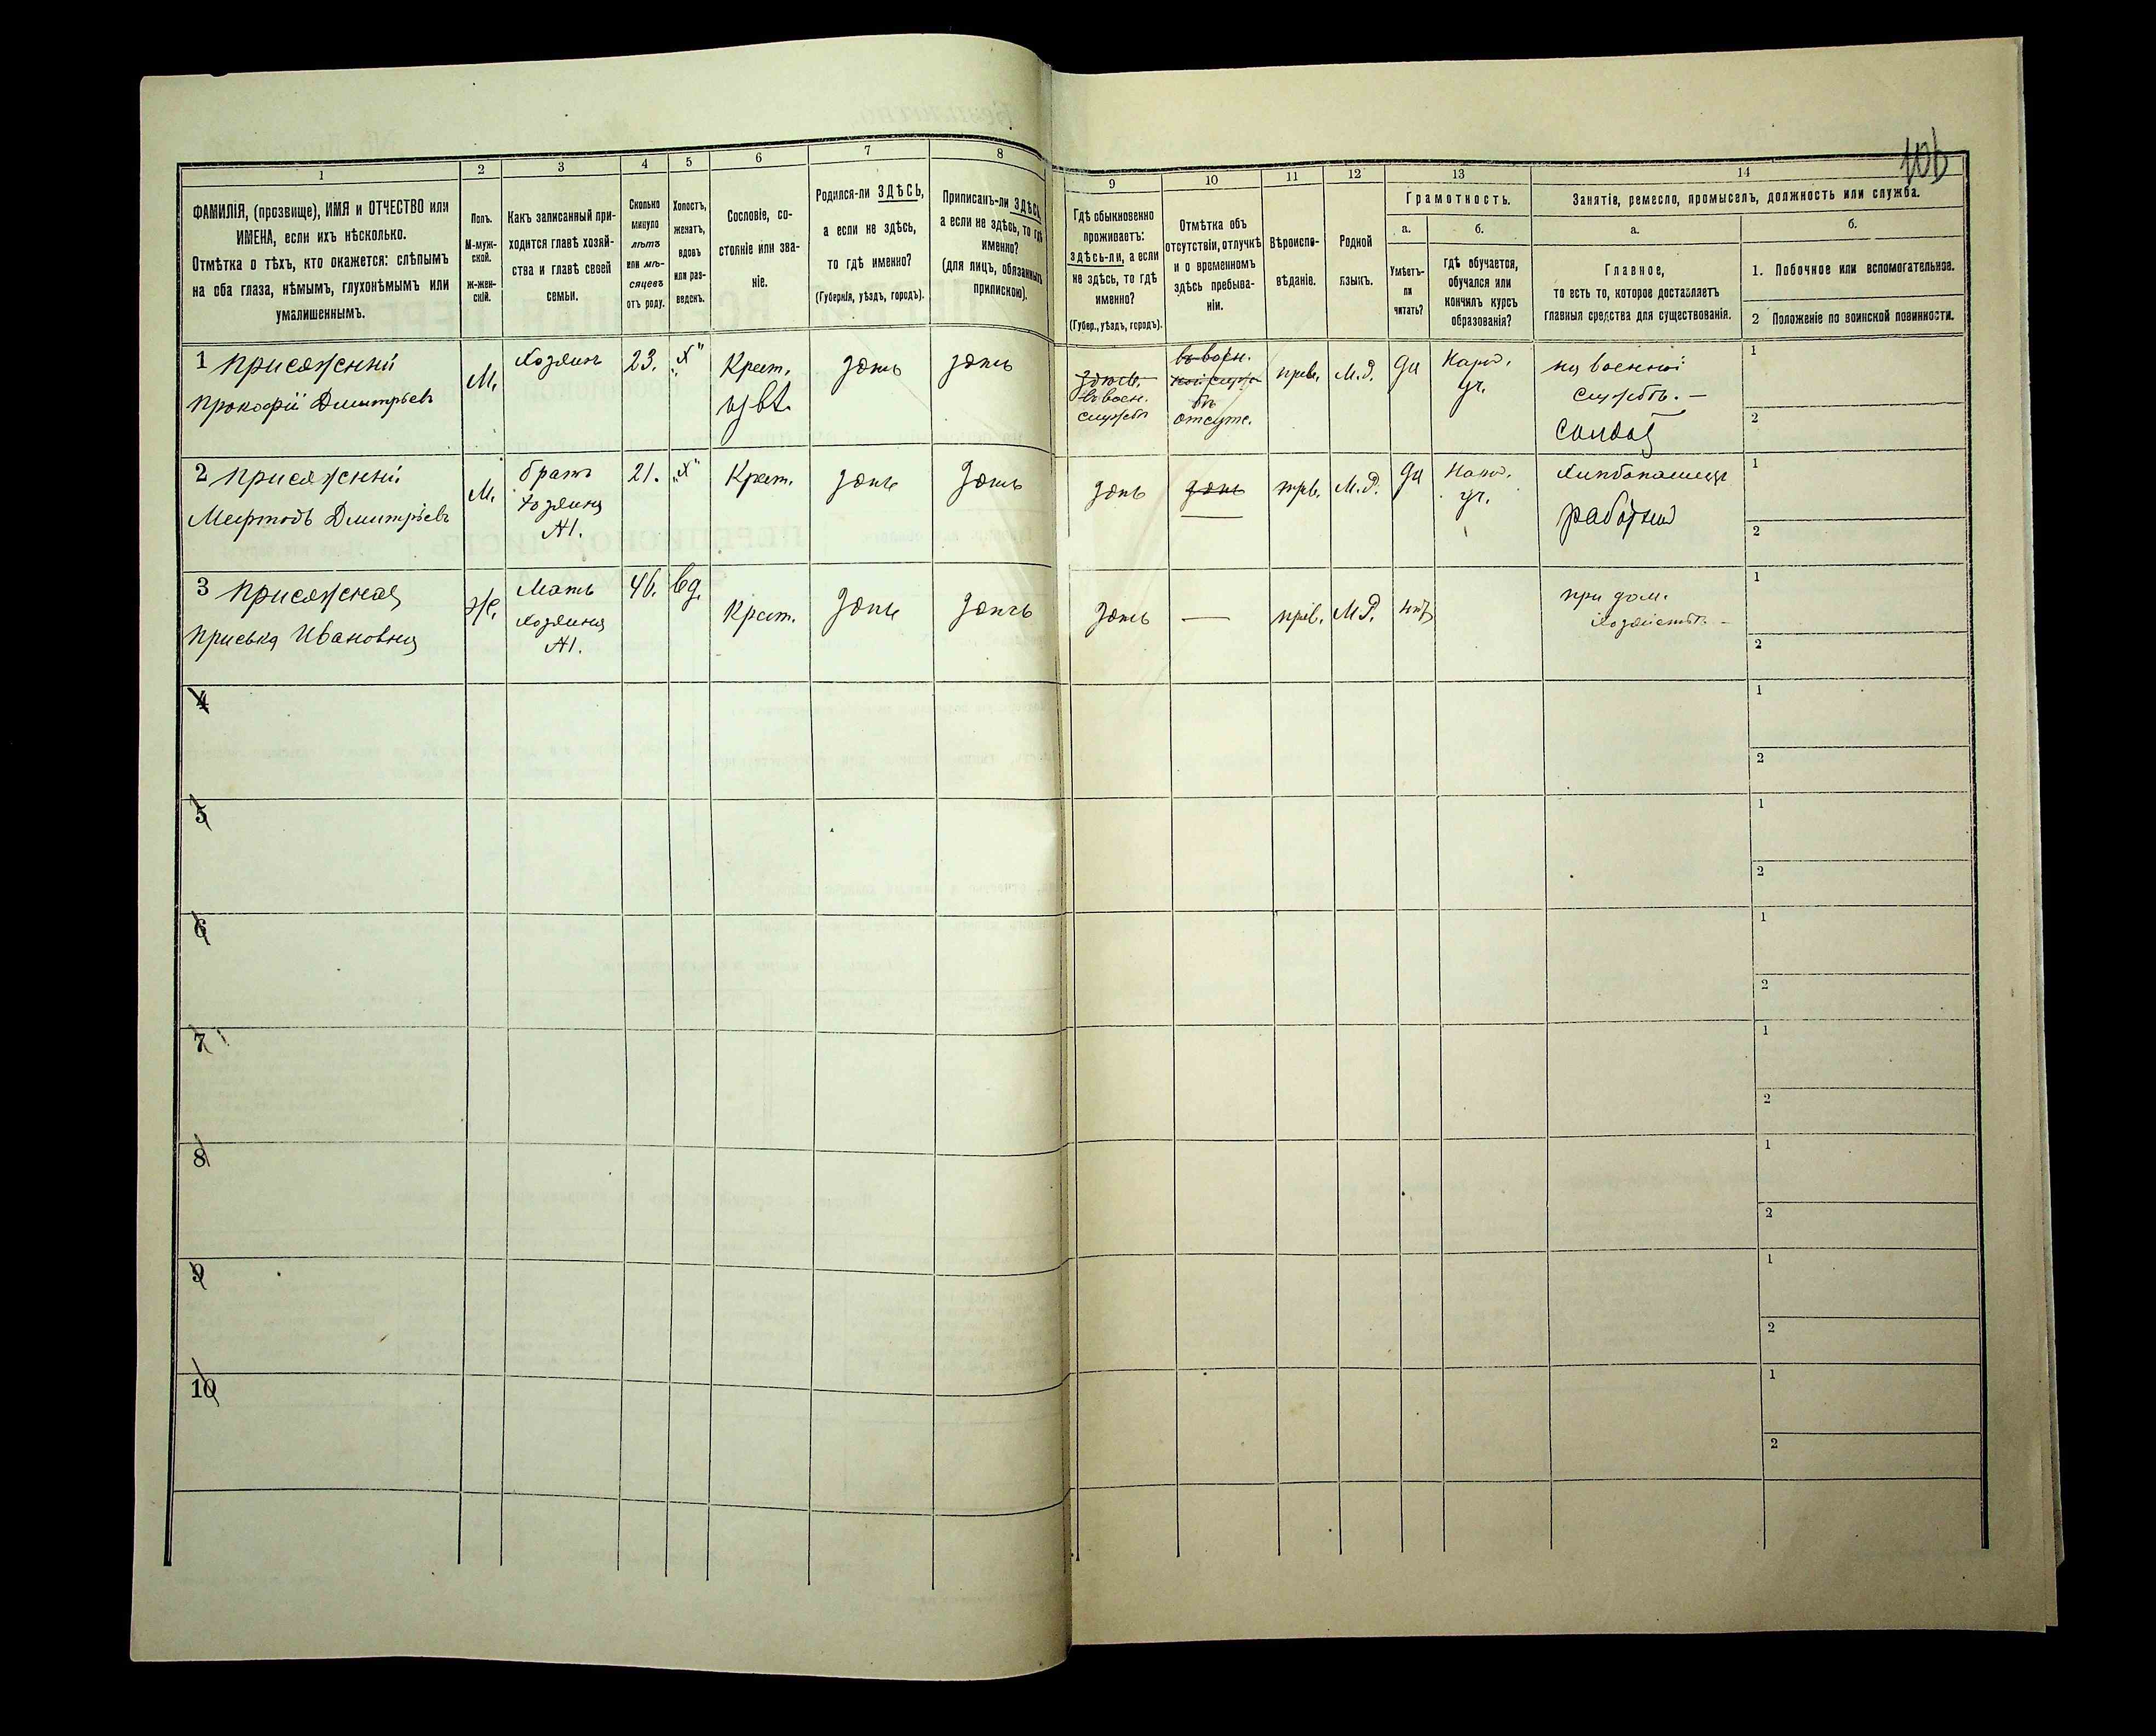 106
1
2
3
4
5
6
7
8
9
10
11
12
13
14
ФАМИЛІЯ, (прозвище), ИМЯ и ОТЧЕСТВО или
ИМЕНА, если ихъ нѣсколько.
Отмѣтка о тѣхъ, кто окажется: слѣпымъ
на оба глаза, нѣмымъ, глухонѣмымъ или
умалишеннымъ.
Полъ.
М-муж-
ской.
Ж-жен-
скій.
Какъ записанный при-
ходится главѣ хозяй-
ства и главѣ своей
семьи.
Сколько
минуло
лѣтъ
или мѣ-
сяцевъ
отъ роду.
Холостъ,
женатъ,
вдовъ
или раз-
веденъ.
Сословіе, со-
стояніе или зва-
ніе.
Родился-ли ЗДѢСЬ,
а если не здѣсь,
то гдѣ именно?
(Губернія, уѣздъ, городъ).
Приписанъ-ли ЗДѢСЬ,
а если не здѣсь, то гдѣ
именно?
(для лицъ, обязанныхъ
припискою).
Гдѣ обыкновенно
проживаетъ:
здѣсь-ли, а если
не здѣсь, то гдѣ
именно?
(Губер., уѣздъ, городъ).
Отмѣтка объ
отсутствіи, отлучкѣ
и о временномъ
здѣсь пребыва-
ніи.
Вѣроиспо-
вѣданіе.
Родной
языкъ.
Грамотность.
а.
Умѣетъ-
ли
читать?
б.
Гдѣ обучается,
обучался или
кончилъ курсъ
образованія?
Занятіе, ремесло, промыселъ, должность или служба.
а.
Главное,
то есть то, которое доставляетъ
главныя средства для существованія.
б.
1. Побочное или вспомогательное.
2 Положеніе по воинской повинности.
1 Присяжный
Прокофій Дмитріевъ
М.
Хозяинъ
23.
„Х“
Крест.
здѣсь
здѣсь
здѣсь.
въ воен.
службѣ
въ воен.
отсутс.
прав.
М.Р.
да
Народ.
уч.
на военной
службѣ. —
солдат
1
2
2 Присяжный
Мефтодъ Дмитріевъ
М.
братъ
хозяина
№1.
21.
„Х“
Крест.
здѣсь
здѣсь
здѣсь
здѣсь
—
прв.
М.Р.
да
Народ.
уч.
Хлѣбопашецъ
работник
1
2
3 Присяжная
Приська Ивановна
Ж.
Мать
хозяина
№1.
46.
вд.
Крест.
здѣсь
здѣсь
здѣсь
—
прав.
М.Р.
нѣт
при дом.
хозяйствѣ. —
1
2
4
1
2
5
1
2
6
1
2
7
1
2
8
1
2
9
1
2
10
1
2